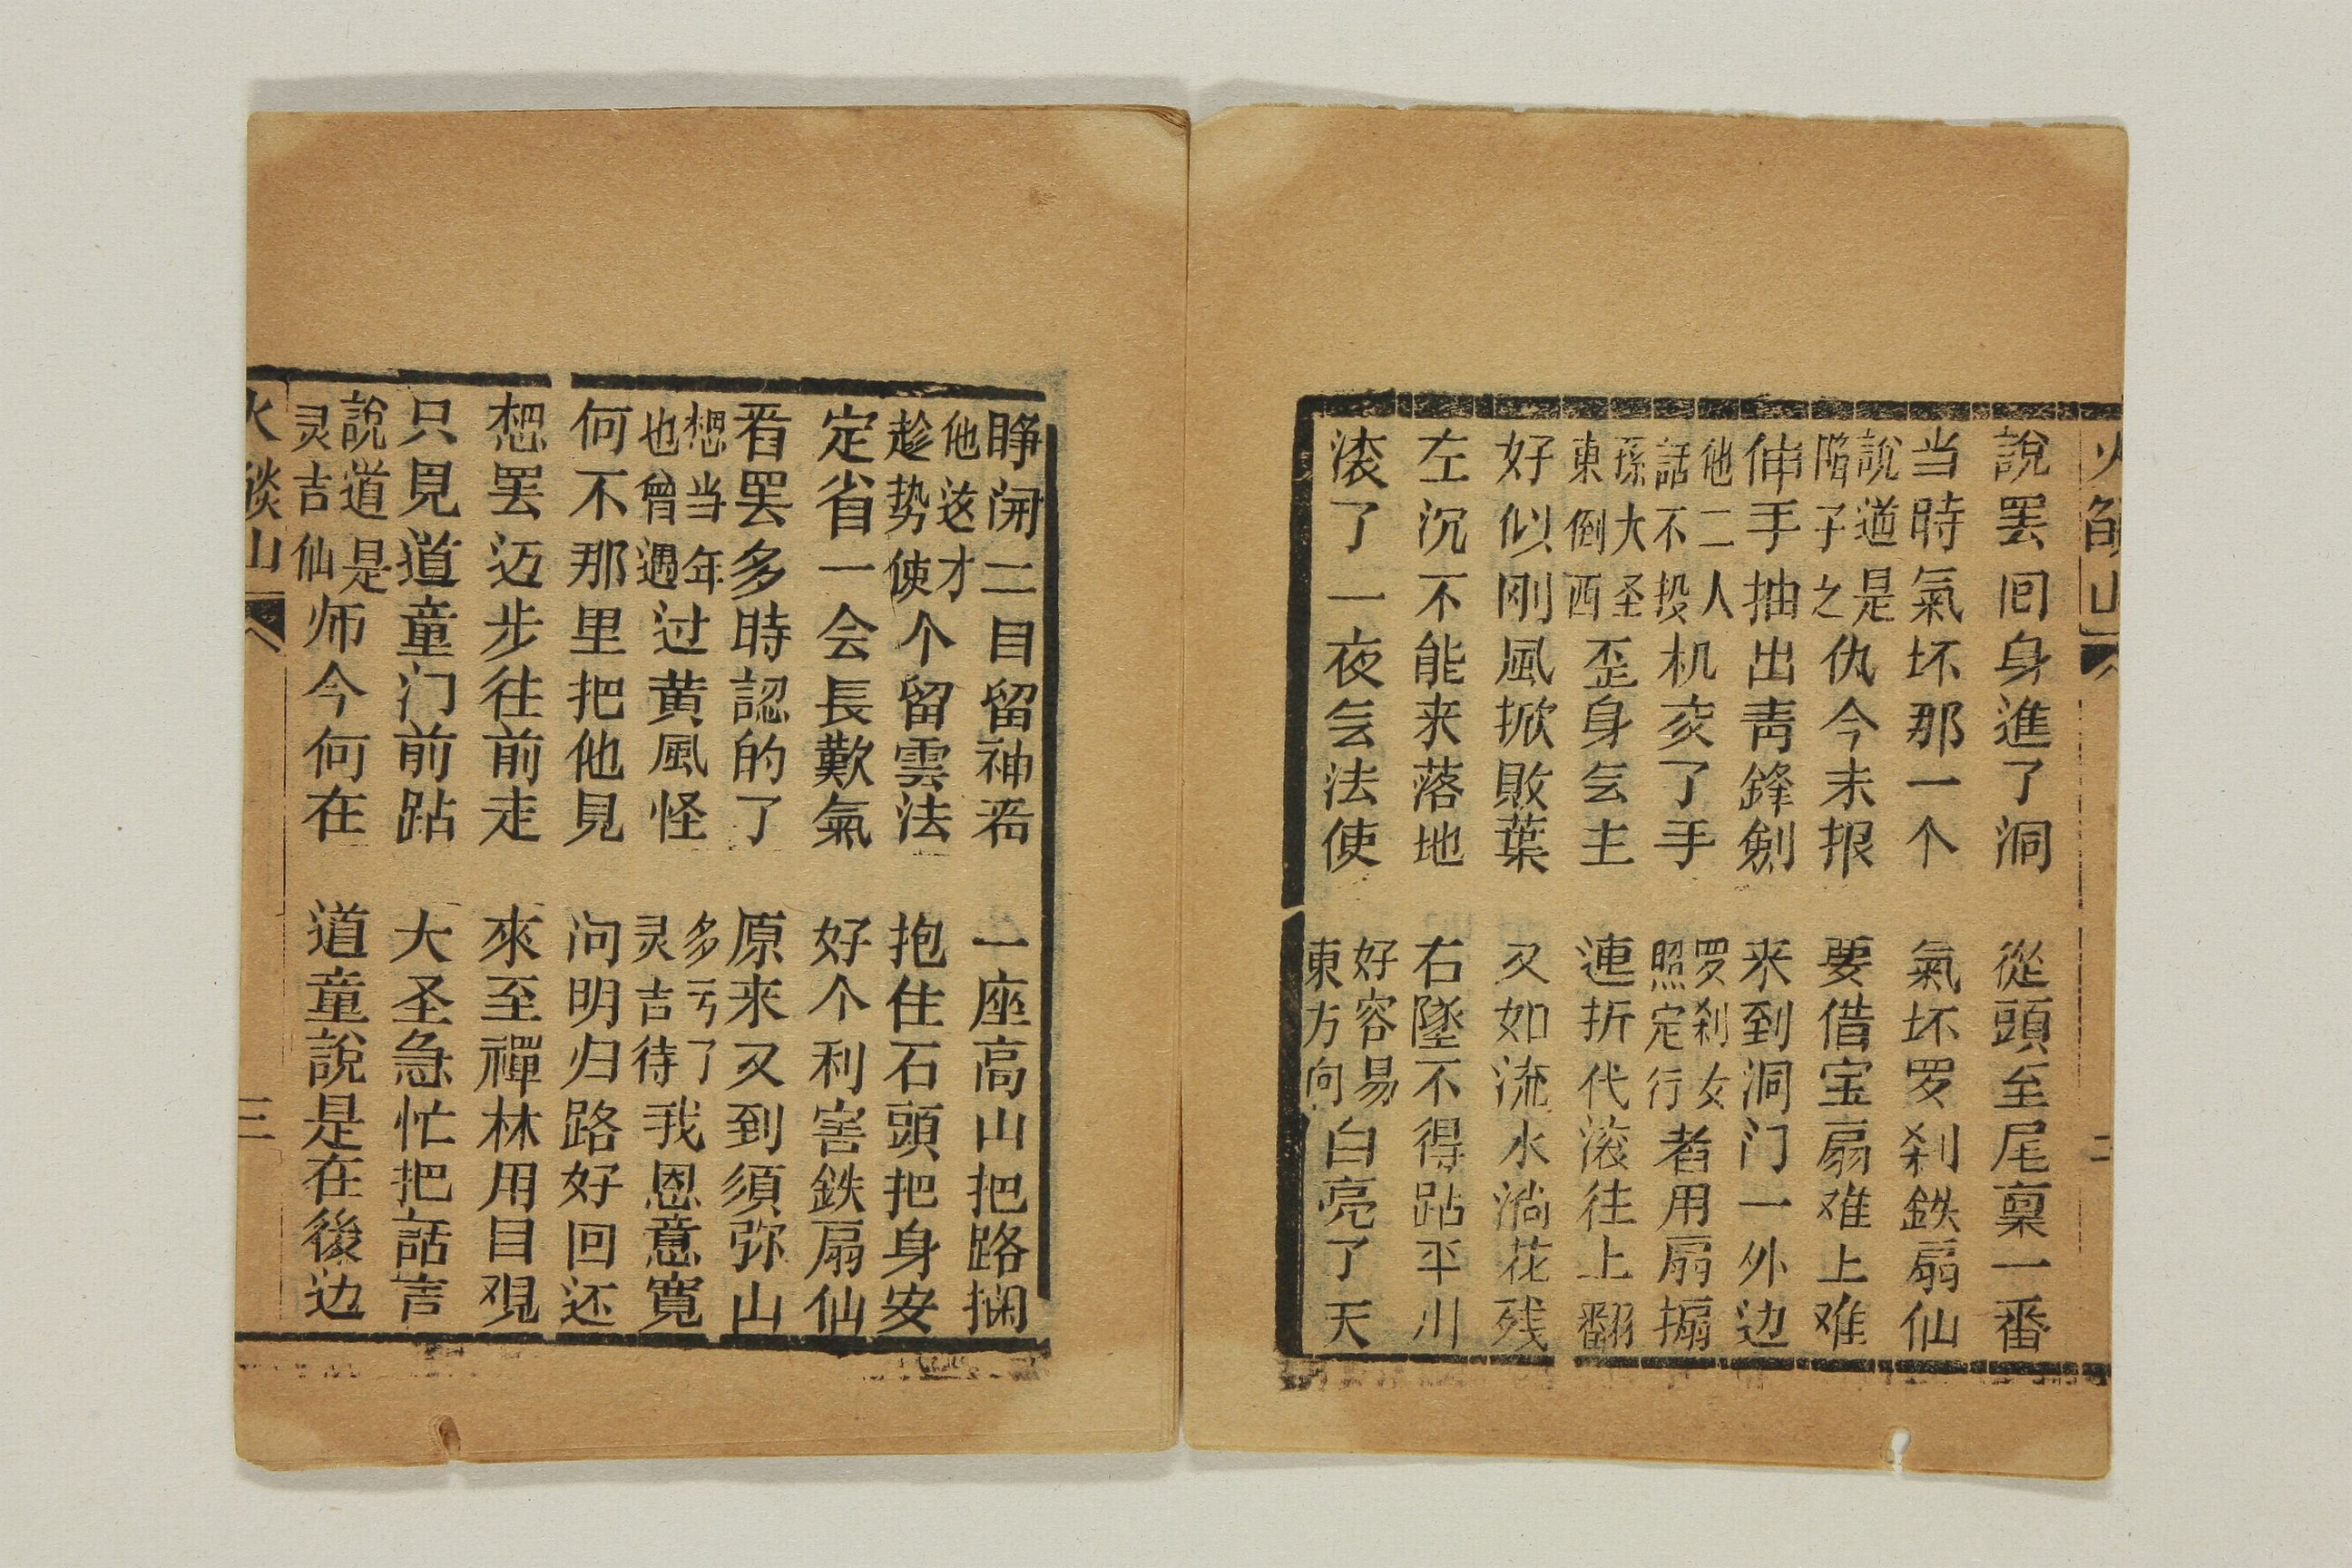 說罢囘身進了洞　從頭至尾稟一番
当時氣坏那一个　氣坏罗刹鉄扇仙
說道是階子之仇今未报　要借宝扇难上难
伸手抽出青鋒劍　来到洞门一外边
他二人話不投机变了手　罗刹女照定行者用扇搧
孫大圣東倒西歪身无主　連折代滚往上翻
好似刚風掀敗葉　又如流水淌花残
左沉不能来落地　右墜不得跕平川
滚了一夜无法使　好容易東方向白亮了天
睁開二目留神看　一座高山把路攔
他这才趁势使个留雲法　抱住石頭把身安
定省一会長歎氣　好个利害鉄扇仙
看罢多時認的了　原来又到須弥山
想当年也曾遇过黄風怪　多亏了灵吉待我恩意寬
何不那里把他見　问明归路好回还
想罢迈步往前走　來至禪林用目观
只見道童门前跕　大圣急忙把話言
說道是灵吉仙师今何在　道童說是在後边
火燄山
三